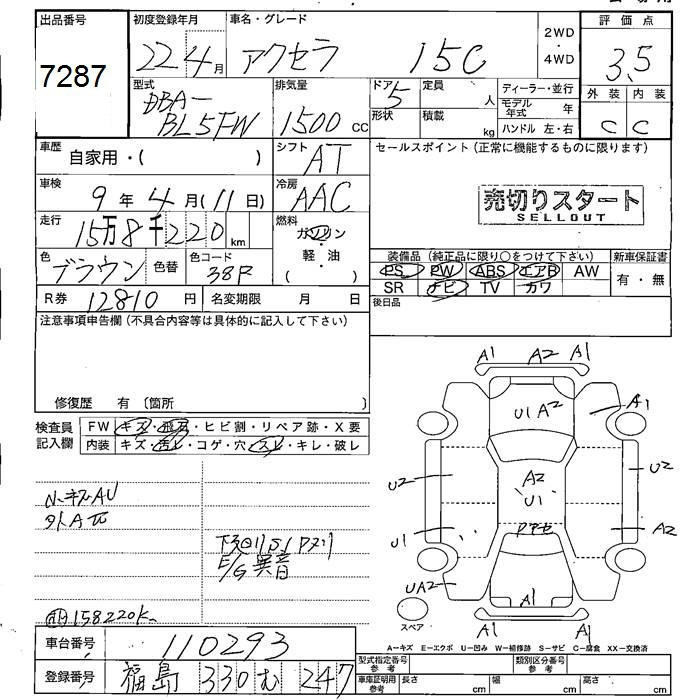 出品番号
7287
初度登録年月
22 4月
車名・グレード
アクセラ 15C
2WD
・
4WD
評価点
3.5
型式
DBA-
BL5FW
排気量
1500 cc
ドア
5
定員
人
形状
積載
kg
ディーラー・並行
モデル年式 年
ハンドル 左・右
外装 内装
C C
車歴
自家用・( )
シフト
AT
セールスポイント(正常に機能するものに限ります)
車検
9年4月(11日)
冷房
AAC
売切りスタート
SELLOUT
走行
15万8千220km
燃料
ガソリン
軽・油
( )
色
ブラウン
色替
色コード
38P
装備品(純正品に限り○をつけて下さい)
PS PW ABS エアB AW
SR ナビ TV カワ
新車保証書
有・無
R券 12810円
名変期限 月 日
後日品
注意事項申告欄(不具合内容等は具体的に記入して下さい)
修復歴 有〔箇所 〕
検査員
記入欄
FW キズ・飛石・ヒビ割・リペア跡・X要
内装 キズ・汚レ・コゲ・穴・スレ・キレ・破レ
小キズAU
下回りS1
E/G異音
158220K
A1 A2 A1
U1 A2
A1
U2
A2
U1
U2
U1
A2
UA2
A1
スペア
A1 A1
A-キズ E-エクボ U-凹み W-補修跡 S-サビ C-腐食 XX-交換済
車台番号
110293
型式指定番号
参考
類別区分番号
参考
登録番号
福島 330 む 247
車庫証明用
参考
長さ cm
幅 cm
高さ cm